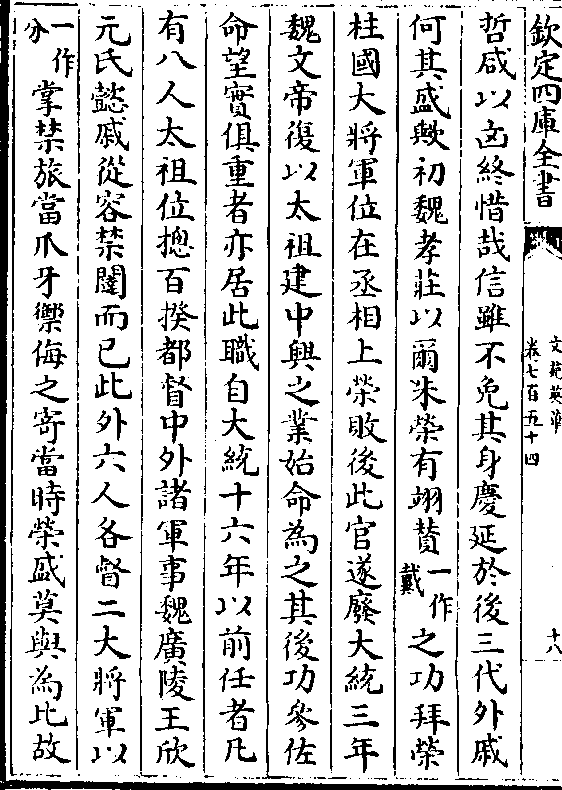 欽定四庫全書
文苑英華
卷七百五十四
十八
哲咸以凶終惜哉信雖不免其身慶延於後三代外戚
何其盛歟初魏孝莊以爾朱榮有翊贊一作戴之功拜榮
柱國大將軍位在丞相上榮敗後此官遂廢大統三年
魏文帝復以太祖建中興之業始命為之其後功參佐
命望實俱重者亦居此職自大統十六年以前任者凡
有八人太祖位摠百揆都督中外諸軍事魏廣陵王欣
元氏懿戚從容禁闥而已此外六人各督二大將軍以
一作分掌禁旅當爪牙禦侮之寄當時榮盛莫與為比故